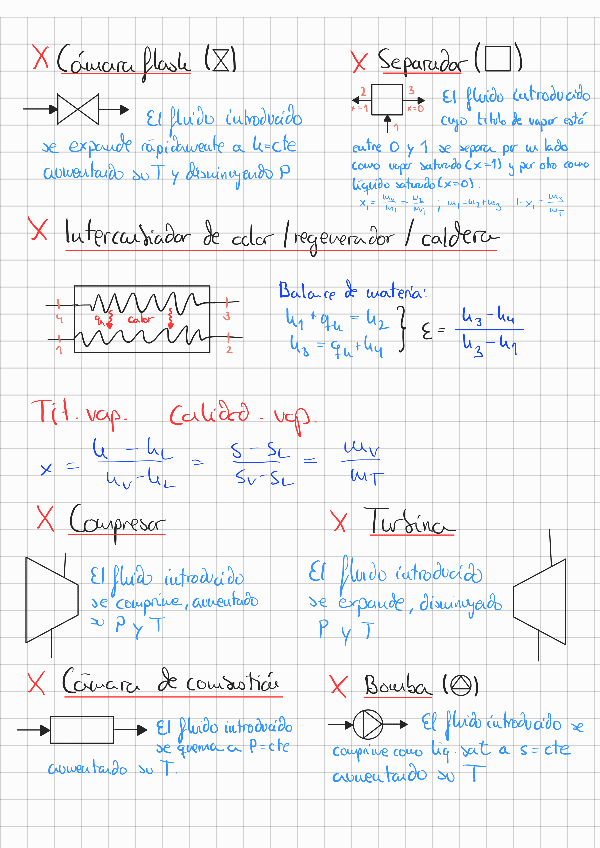 X Cámara flash ( )
El fluido introducido
se expande rápidamente a h=cte
aumentando su T y disminuyendo P
X Separador ( )
2 3
x=1 x=0
1
El fluido introducido
cuyo titulo de vapor está
entre 0 y 1 se separa por un lado
como vapor saturado (x=1) y por otro como
líquido saturado (x=0).
X Intercambiador de calor / regenerador / caldera
4 qu calor 3
1 2
Balance de materia:
h1 + qu = h2
h3 = qu + h4
ε = h3 - h4 / h3 - h1
Tit. vap. Calidad. vap.
x = h - hL / hV - hL = s - sL / sV - sL = mV / mT
X Compresor
El fluido introducido
se comprime, aumentado
su P y T
X Turbina
El fluido introducido
se expande, disminuyendo
P y T
X Cámara de combustión
El fluido introducido
se quema a P=cte
aumentando su T.
X Bomba ( )
El fluido introducido se
comprime como liq. sat a s=cte
aumentando su T